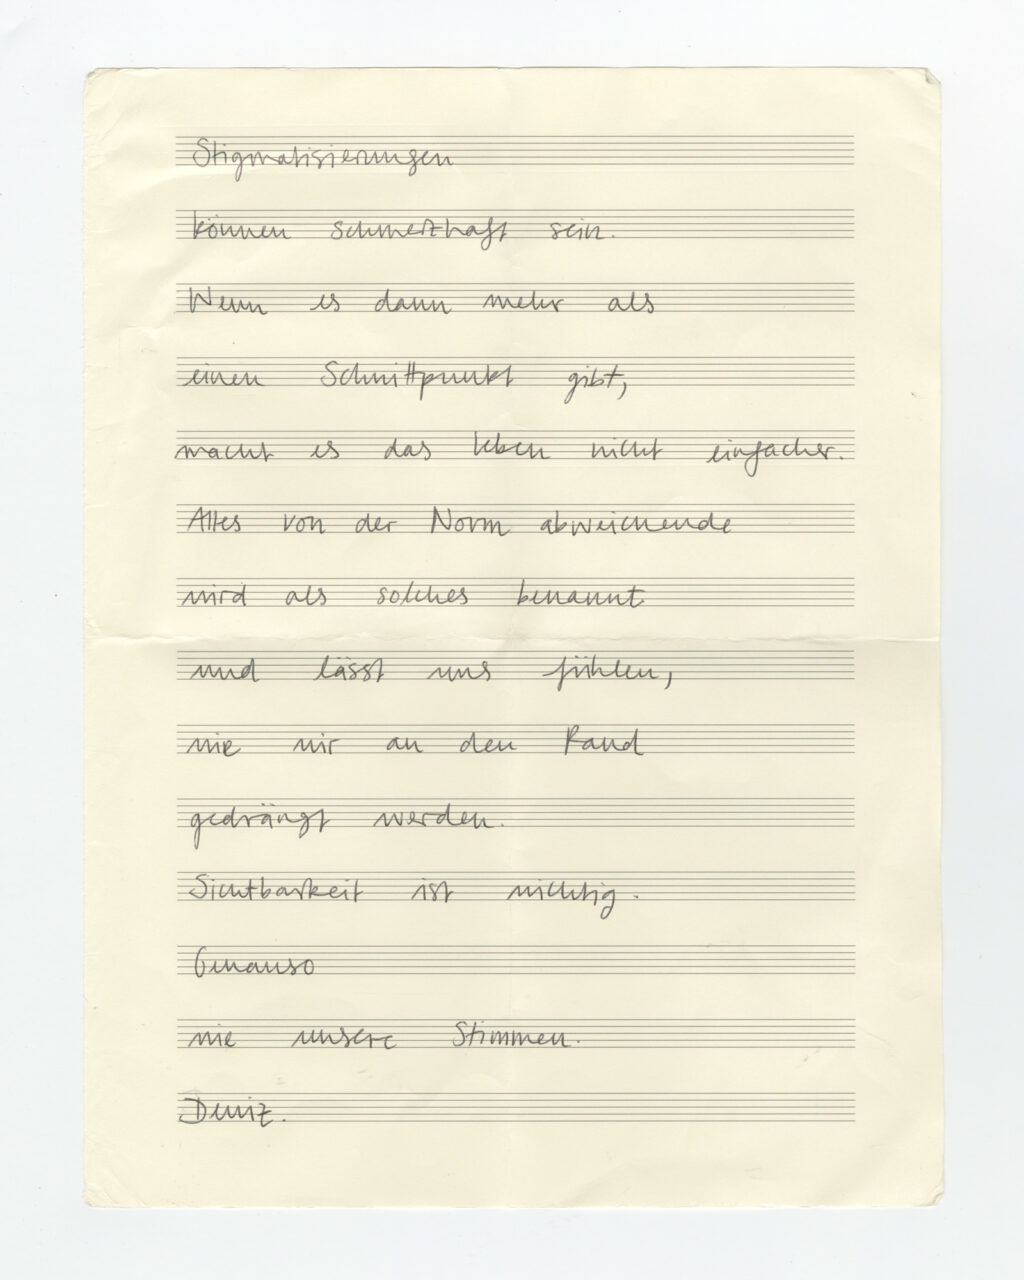 Stigmatisierungen
können schmerzhaft sein.
Wenn es dann mehr als
einen Schnittpunkt gibt,
macht es das leben nicht einfacher.
Alles von der Norm abweichende
wird als solches benannt
und lässt uns fühlen,
wie wir an den Rand
gedrängt werden.
Sichtbarkeit ist wichtig.
Genauso
wie unsere Stimmen.
Deniz.